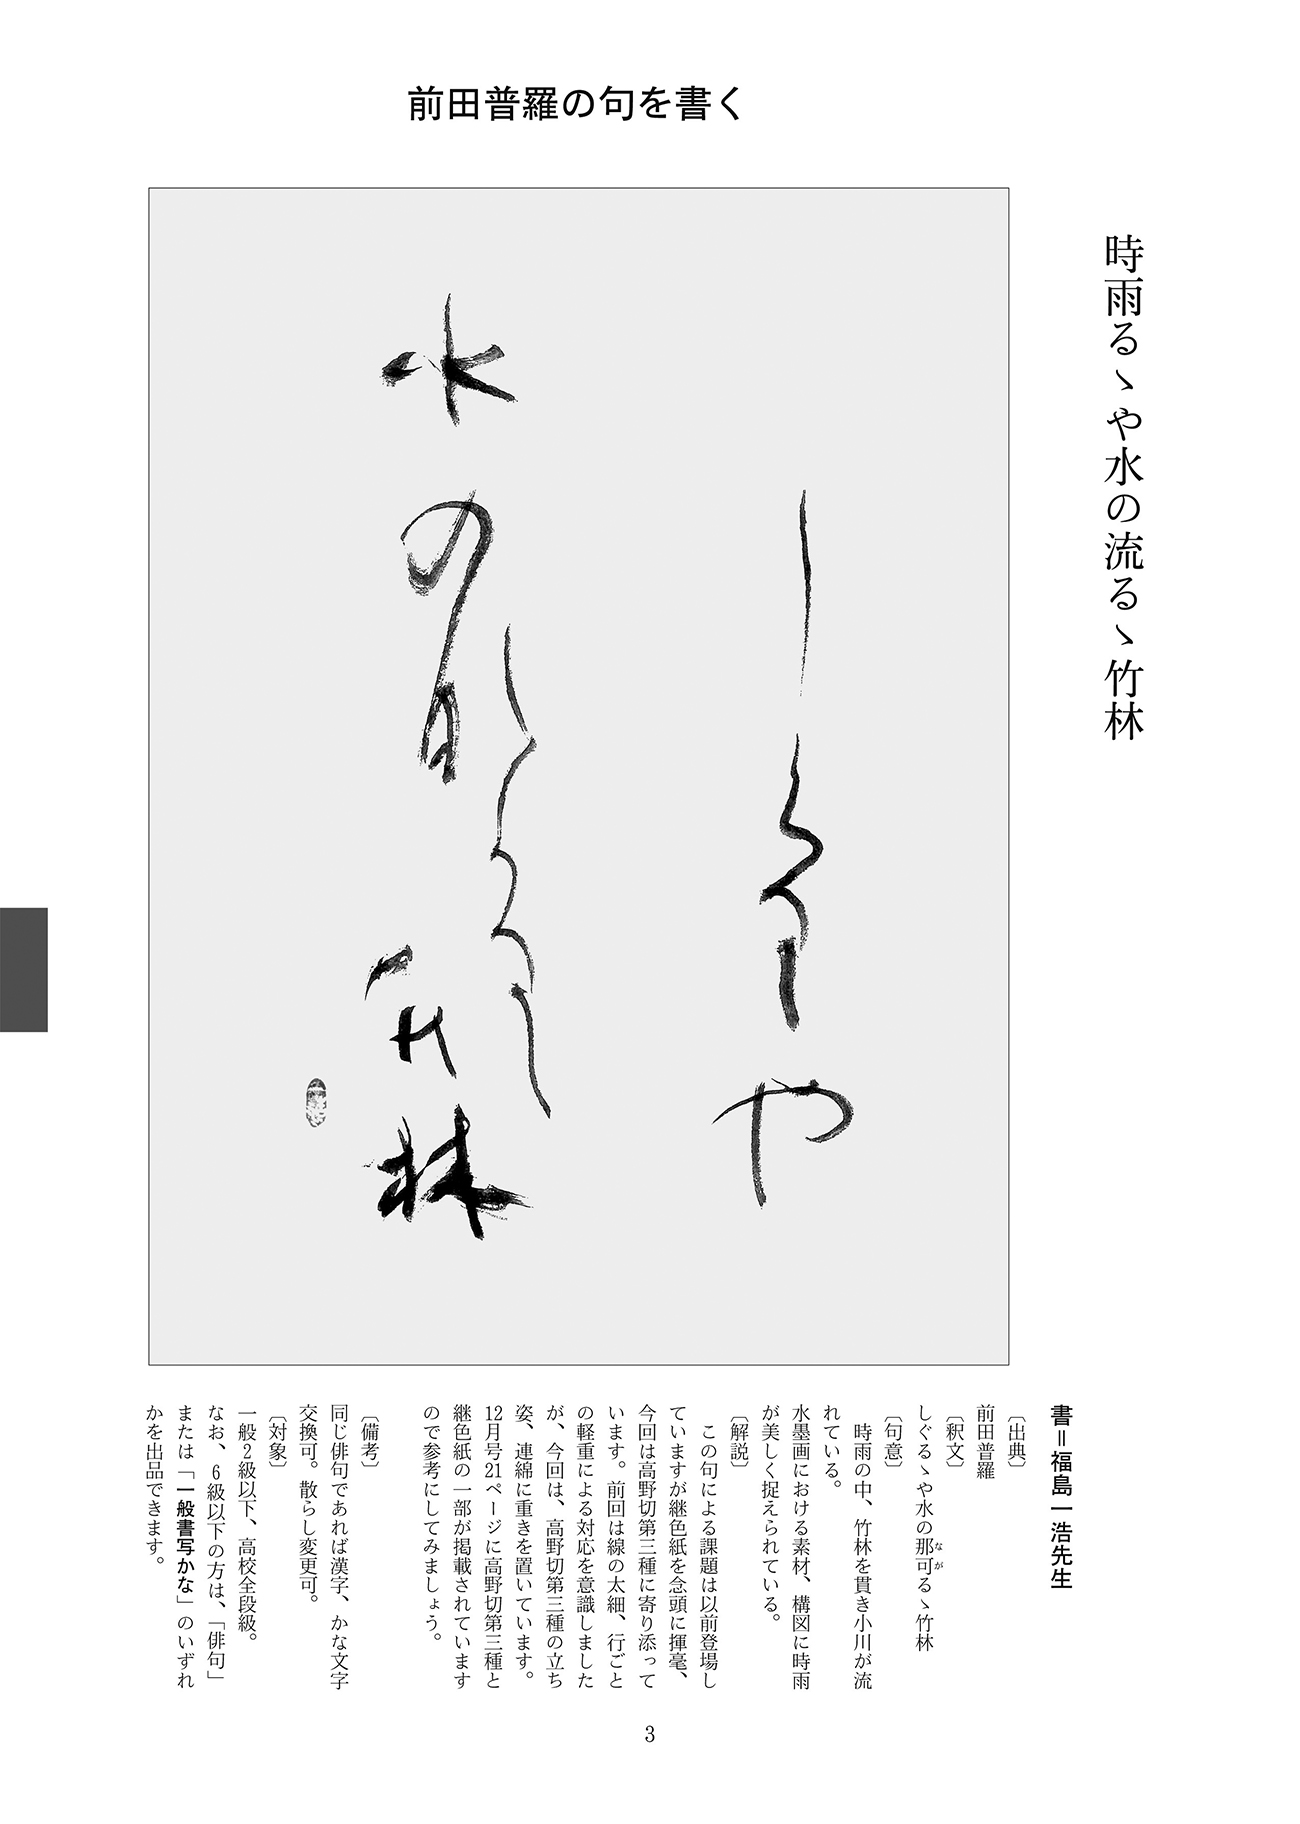 前田普羅の句を書く
時雨るゝや水の流るゝ竹林
しぐるゝや
水の那
可るゝ
竹林
書＝福島一浩先生
〔出典〕
前田普羅
〔釈文〕
しぐるゝや水の那可るゝ竹林
なが
〔句意〕
時雨の中、竹林を貫き小川が流
れている。
水墨画における素材、構図に時雨
が美しく捉えられている。
〔解説〕
この句による課題は以前登場し
ていますが継色紙を念頭に揮毫、
今回は高野切第三種に寄り添って
います。前回は線の太細、行ごと
の軽重による対応を意識しました
が、今回は、高野切第三種の立ち
姿、連綿に重きを置いています。
12月号21ページに高野切第三種と
継色紙の一部が掲載されています
ので参考にしてみましょう。
〔備考〕
同じ俳句であれば漢字、かな文字
交換可。散らし変更可。
〔対象〕
一般2級以下、高校全段級。
なお、6級以下の方は、「俳句」
または「一般書写かな」のいずれ
かを出品できます。
3